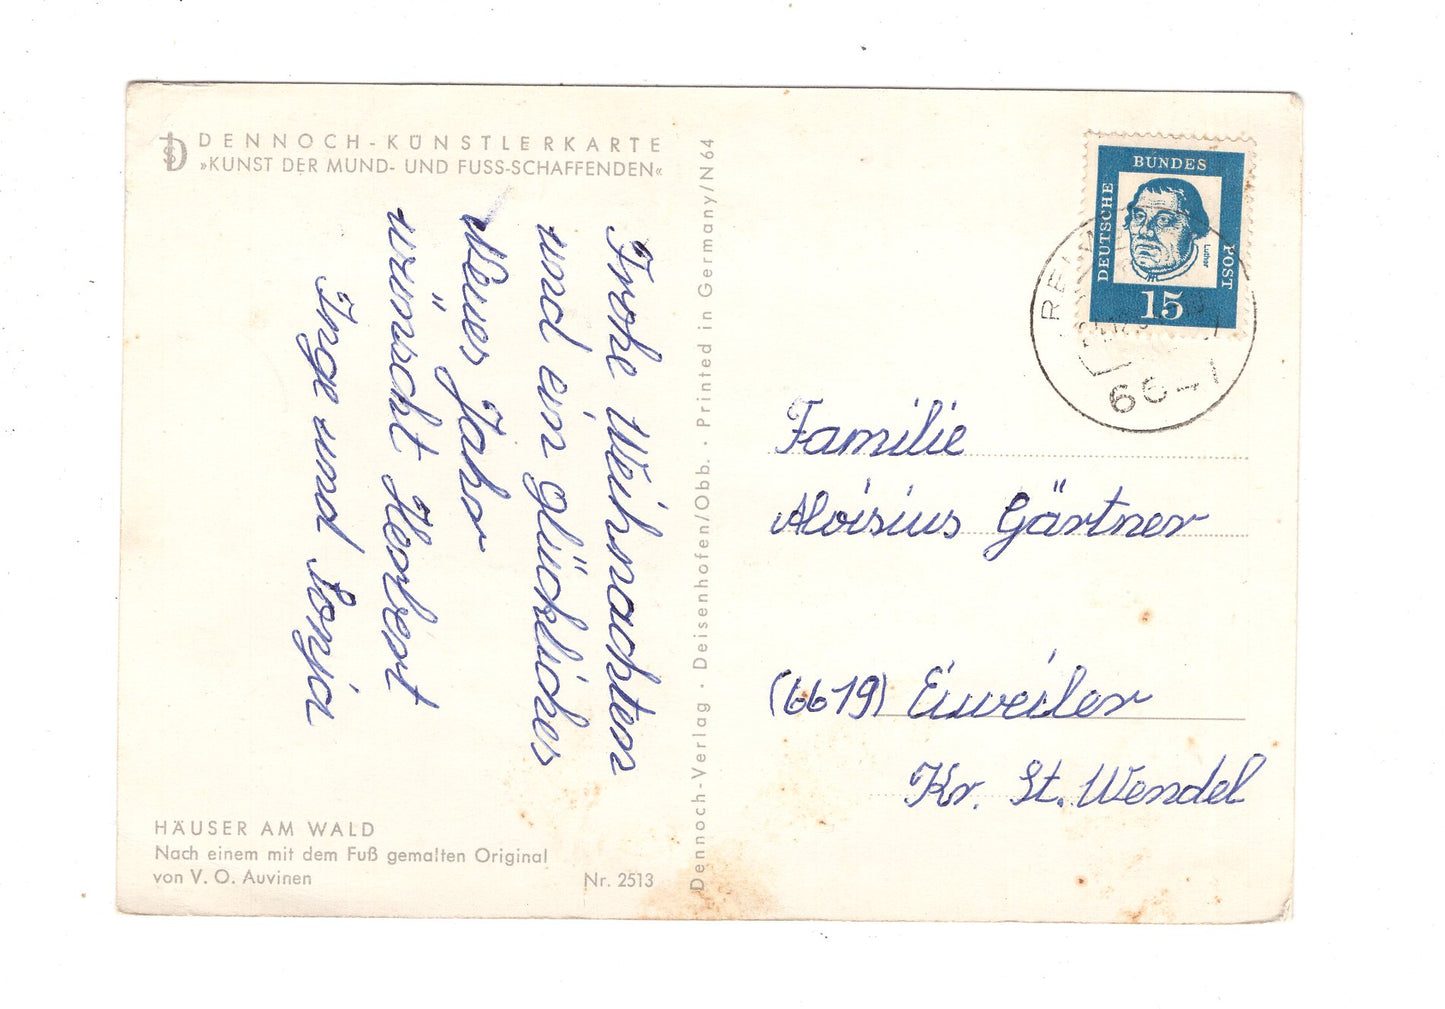 DENNOCH-KÜNSTLERKARTE
»KUNST DER MUND- UND FUSS-SCHAFFENDEN«
Frohe Weihnachten
und ein glückliches
Neues Jahr
wünscht Herbert
Inge und Sonja
HÄUSER AM WALD
Nach einem mit dem Fuß gemalten Original
von V. O. Auvinen
Nr. 2513
Dennoch-Verlag · Deisenhofen/Obb. · Printed in Germany/N 64
DEUTSCHE BUNDES POST
Luther
15
66
Familie
Aloisius Gärtner
(6619) Eiweiler
Kr. St. Wendel